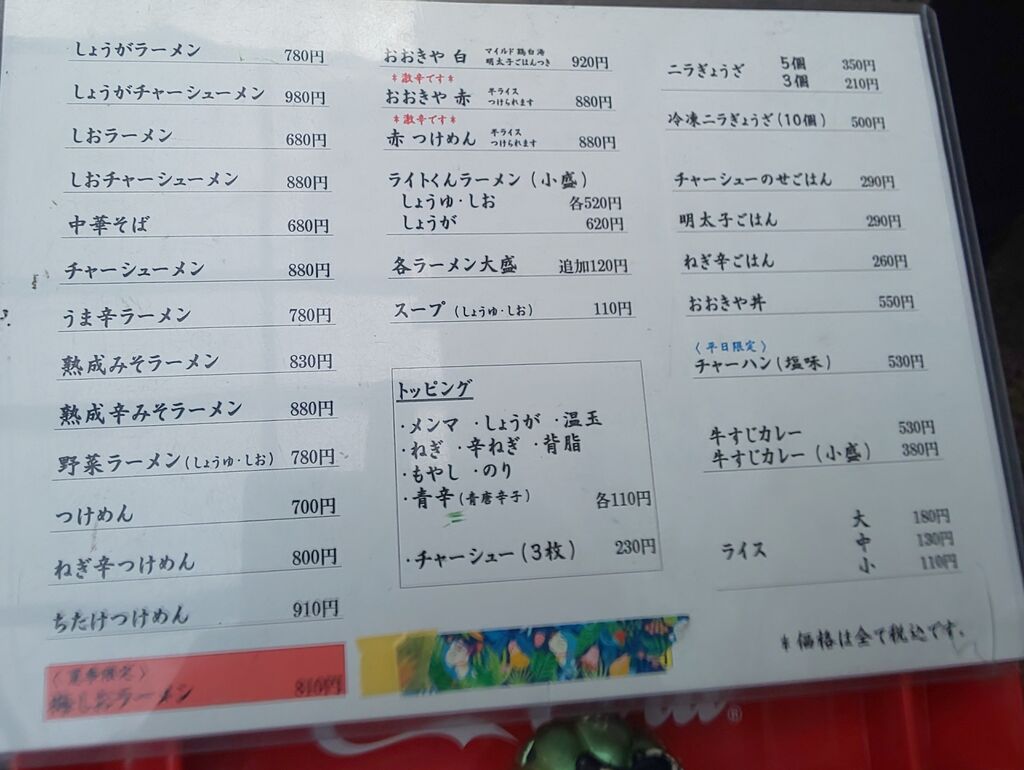 しょうがラーメン 780円
しょうがチャーシューメン 980円
しおラーメン 680円
しおチャーシューメン 880円
中華そば 680円
チャーシューメン 880円
うま辛ラーメン 780円
熟成みそラーメン 830円
熟成辛みそラーメン 880円
野菜ラーメン(しょうゆ・しお) 780円
つけめん 700円
ねぎ辛つけめん 800円
ちたけつけめん 910円
〈夏季限定〉
梅しおラーメン 810円
おおきや 白 マイルド鶏白湯 明太子ごはんつき 920円
*激辛です*
おおきや 赤 半ライス つけられます 880円
*激辛です*
赤 つけめん 半ライス つけられます 880円
ライトくんラーメン(小盛)
しょうゆ・しお 各520円
しょうが 620円
各ラーメン大盛 追加120円
スープ(しょうゆ・しお) 110円
トッピング
・メンマ ・しょうが ・温玉
・ねぎ ・辛ねぎ ・背脂
・もやし ・のり
・青辛(青唐辛子) 各110円
・チャーシュー(3枚) 230円
ニラぎょうざ 5個 350円
3個 210円
冷凍ニラぎょうざ(10個) 500円
チャーシューのせごはん 290円
明太子ごはん 290円
ねぎ辛ごはん 260円
おおきや丼 550円
〈平日限定〉
チャーハン(塩味) 530円
牛すじカレー 530円
牛すじカレー(小盛) 380円
ライス 大 180円
中 130円
小 110円
*価格は全て税込です。